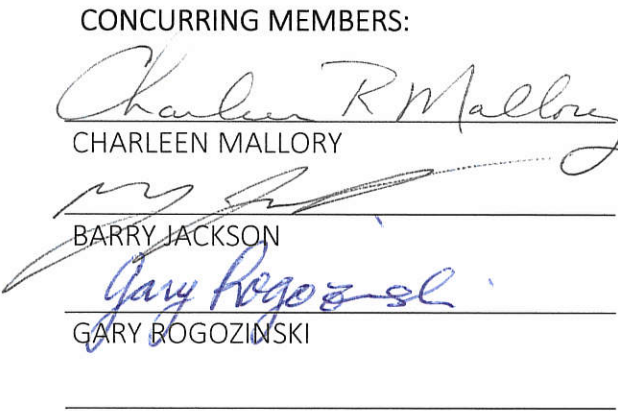 CONCURRING MEMBERS:
Charleen R Mallory
CHARLEEN MALLORY
BARRY JACKSON
Gary Rogozinski
GARY ROGOZINSKI